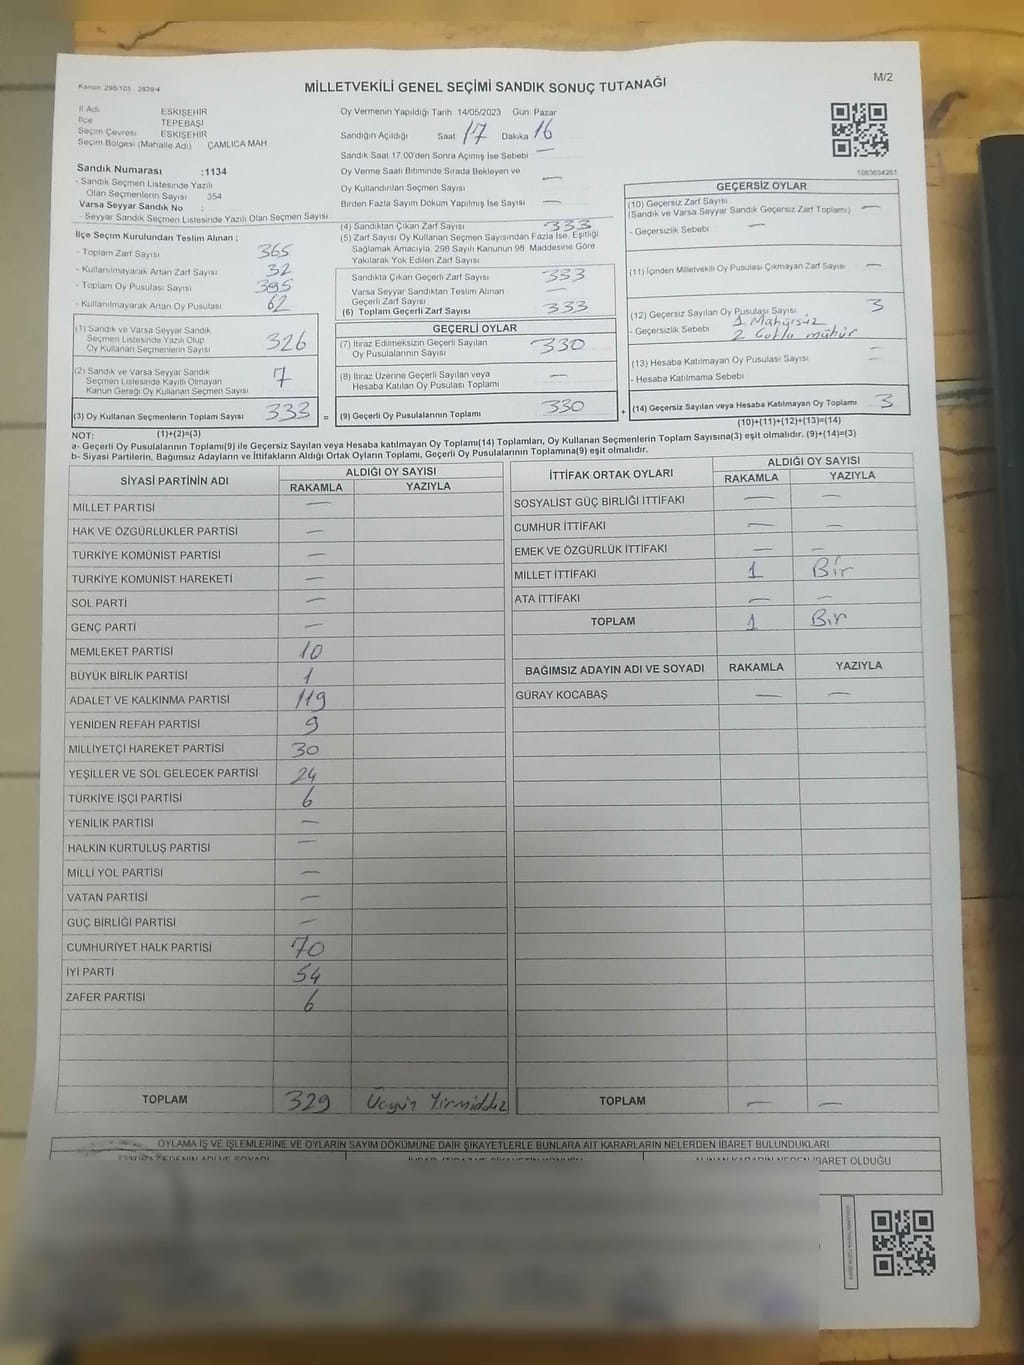 Kanun: 298/105 2839/4
MİLLETVEKİLİ GENEL SEÇİMİ SANDIK SONUÇ TUTANAĞI
M/2
İl Adı ESKİŞEHİR
İlçe TEPEBAŞI
Seçim Çevresi ESKİŞEHİR
Seçim Bölgesi (Mahalle Adı) ÇAMLICA MAH
Sandık Numarası :1134
- Sandık Seçmen Listesinde Yazılı
Olan Seçmenlerin Sayısı 354
Varsa Seyyar Sandık No :
- Seyyar Sandık Seçmen Listesinde Yazılı Olan Seçmen Sayısı
İlçe Seçim Kurulundan Teslim Alınan :
- Toplam Zarf Sayısı 365
- Kullanılmayarak Artan Zarf Sayısı 32
- Toplam Oy Pusulası Sayısı 395
- Kullanılmayarak Artan Oy Pusulası 62
(1) Sandık ve Varsa Seyyar Sandık
Seçmen Listesinde Yazılı Olup
Oy Kullanan Seçmenlerin Sayısı 326
(2) Sandık ve Varsa Seyyar Sandık
Seçmen Listesinde Kayıtlı Olmayan
Kanun Gereği Oy Kullanan Seçmen Sayısı 7
(3) Oy Kullanan Seçmenlerin Toplam Sayısı 333 =
Oy Vermenin Yapıldığı Tarih 14/05/2023 Gün Pazar
Sandığın Açıldığı Saat 17 Dakika 16
Sandık Saat 17:00'den Sonra Açılmış İse Sebebi —
Oy Verme Saati Bitiminde Sırada Bekleyen ve
Oy Kullandırılan Seçmen Sayısı —
Birden Fazla Sayım Döküm Yapılmış İse Sayısı —
(4) Sandıktan Çıkan Zarf Sayısı 333
(5) Zarf Sayısı Oy Kullanan Seçmen Sayısından Fazla İse, Eşitliği
Sağlamak Amacıyla, 298 Sayılı Kanunun 98. Maddesine Göre
Yakılarak Yok Edilen Zarf Sayısı
Sandıkta Çıkan Geçerli Zarf Sayısı 333
Varsa Seyyar Sandıktan Teslim Alınan
Geçerli Zarf Sayısı —
(6) Toplam Geçerli Zarf Sayısı 333
GEÇERLİ OYLAR
(7) İtiraz Edilmeksizin Geçerli Sayılan
Oy Pusulalarının Sayısı 330
(8) İtiraz Üzerine Geçerli Sayılan veya
Hesaba Katılan Oy Pusulası Toplamı —
(9) Geçerli Oy Pusulalarının Toplamı 330 +
1083634261
GEÇERSİZ OYLAR
(10) Geçersiz Zarf Sayısı —
(Sandık ve Varsa Seyyar Sandık Geçersiz Zarf Toplamı)
- Geçersizlik Sebebi —
(11) İçinden Milletvekili Oy Pusulası Çıkmayan Zarf Sayısı —
(12) Geçersiz Sayılan Oy Pusulası Sayısı 3
- Geçersizlik Sebebi 1 Mühürsüz
2 Çoklu mühür
(13) Hesaba Katılmayan Oy Pusulası Sayısı —
- Hesaba Katılmama Sebebi —
(14) Geçersiz Sayılan veya Hesaba Katılmayan Oy Toplamı 3
NOT: (1)+(2)=(3)
(10)+(11)+(12)+(13)=(14)
a- Geçerli Oy Pusulalarının Toplamı(9) ile Geçersiz Sayılan veya Hesaba katılmayan Oy Toplamı(14) Toplamları, Oy Kullanan Seçmenlerin Toplam Sayısına(3) eşit olmalıdır. (9)+(14)=(3)
b- Siyasi Partilerin, Bağımsız Adayların ve İttifakların Aldığı Ortak Oyların Toplamı, Geçerli Oy Pusulalarının Toplamına(9) eşit olmalıdır.
SİYASİ PARTİNİN ADI ALDIĞI OY SAYISI
RAKAMLA YAZIYLA
MİLLET PARTİSİ —
HAK VE ÖZGÜRLÜKLER PARTİSİ —
TÜRKİYE KOMÜNİST PARTİSİ —
TÜRKİYE KOMÜNİST HAREKETİ —
SOL PARTİ —
GENÇ PARTİ —
MEMLEKET PARTİSİ 10
BÜYÜK BİRLİK PARTİSİ 1
ADALET VE KALKINMA PARTİSİ 119
YENİDEN REFAH PARTİSİ 9
MİLLİYETÇİ HAREKET PARTİSİ 30
YEŞİLLER VE SOL GELECEK PARTİSİ 24
TÜRKİYE İŞÇİ PARTİSİ 6
YENİLİK PARTİSİ —
HALKIN KURTULUŞ PARTİSİ —
MİLLİ YOL PARTİSİ —
VATAN PARTİSİ —
GÜÇ BİRLİĞİ PARTİSİ —
CUMHURİYET HALK PARTİSİ 70
İYİ PARTİ 54
ZAFER PARTİSİ 6
TOPLAM 329 Üçyüz Yirmidokuz
İTTİFAK ORTAK OYLARI ALDIĞI OY SAYISI
RAKAMLA YAZIYLA
SOSYALİST GÜÇ BİRLİĞİ İTTİFAKI — —
CUMHUR İTTİFAKI — —
EMEK VE ÖZGÜRLÜK İTTİFAKI — —
MİLLET İTTİFAKI 1 Bir
ATA İTTİFAKI — —
TOPLAM 1 Bir
BAĞIMSIZ ADAYIN ADI VE SOYADI RAKAMLA YAZIYLA
GÜRAY KOCABAŞ — —
TOPLAM — —
OYLAMA İŞ VE İŞLEMLERİNE VE OYLARIN SAYIM DÖKÜMÜNE DAİR ŞİKAYETLERLE BUNLARA AİT KARARLARIN NELERDEN İBARET BULUNDUKLARI
ALINAN KARARIN NEDEN İBARET OLDUĞU